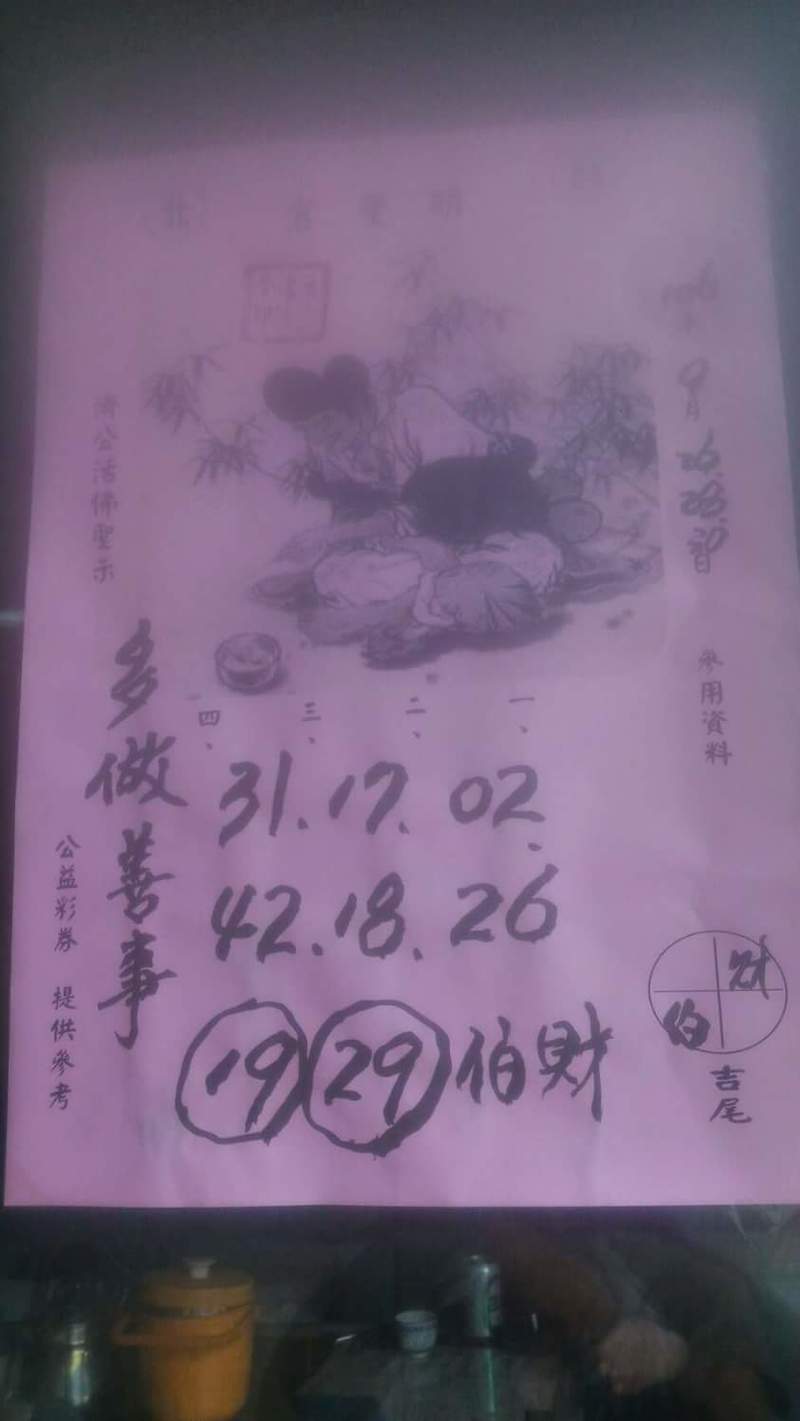 9月
26.28.30日
參用資料
濟公活佛聖示
一、
二、
三、
四、
31.17.02.
42.18.26
19 29 伯財
多做善事
公益彩券 提供參考
財
伯
吉尾